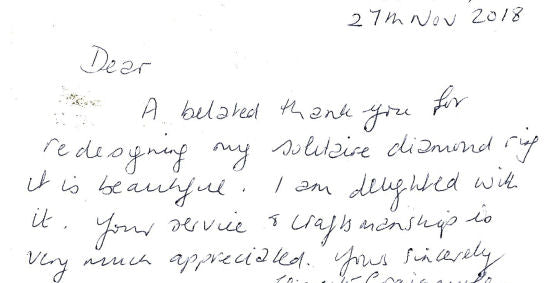 27th Nov 2018
Dear
A belated thank you for
redesigning my solitaire diamond ring
it is beautiful. I am delighted with
it. Your service & craftsmanship is
very much appreciated. Yours sincerely